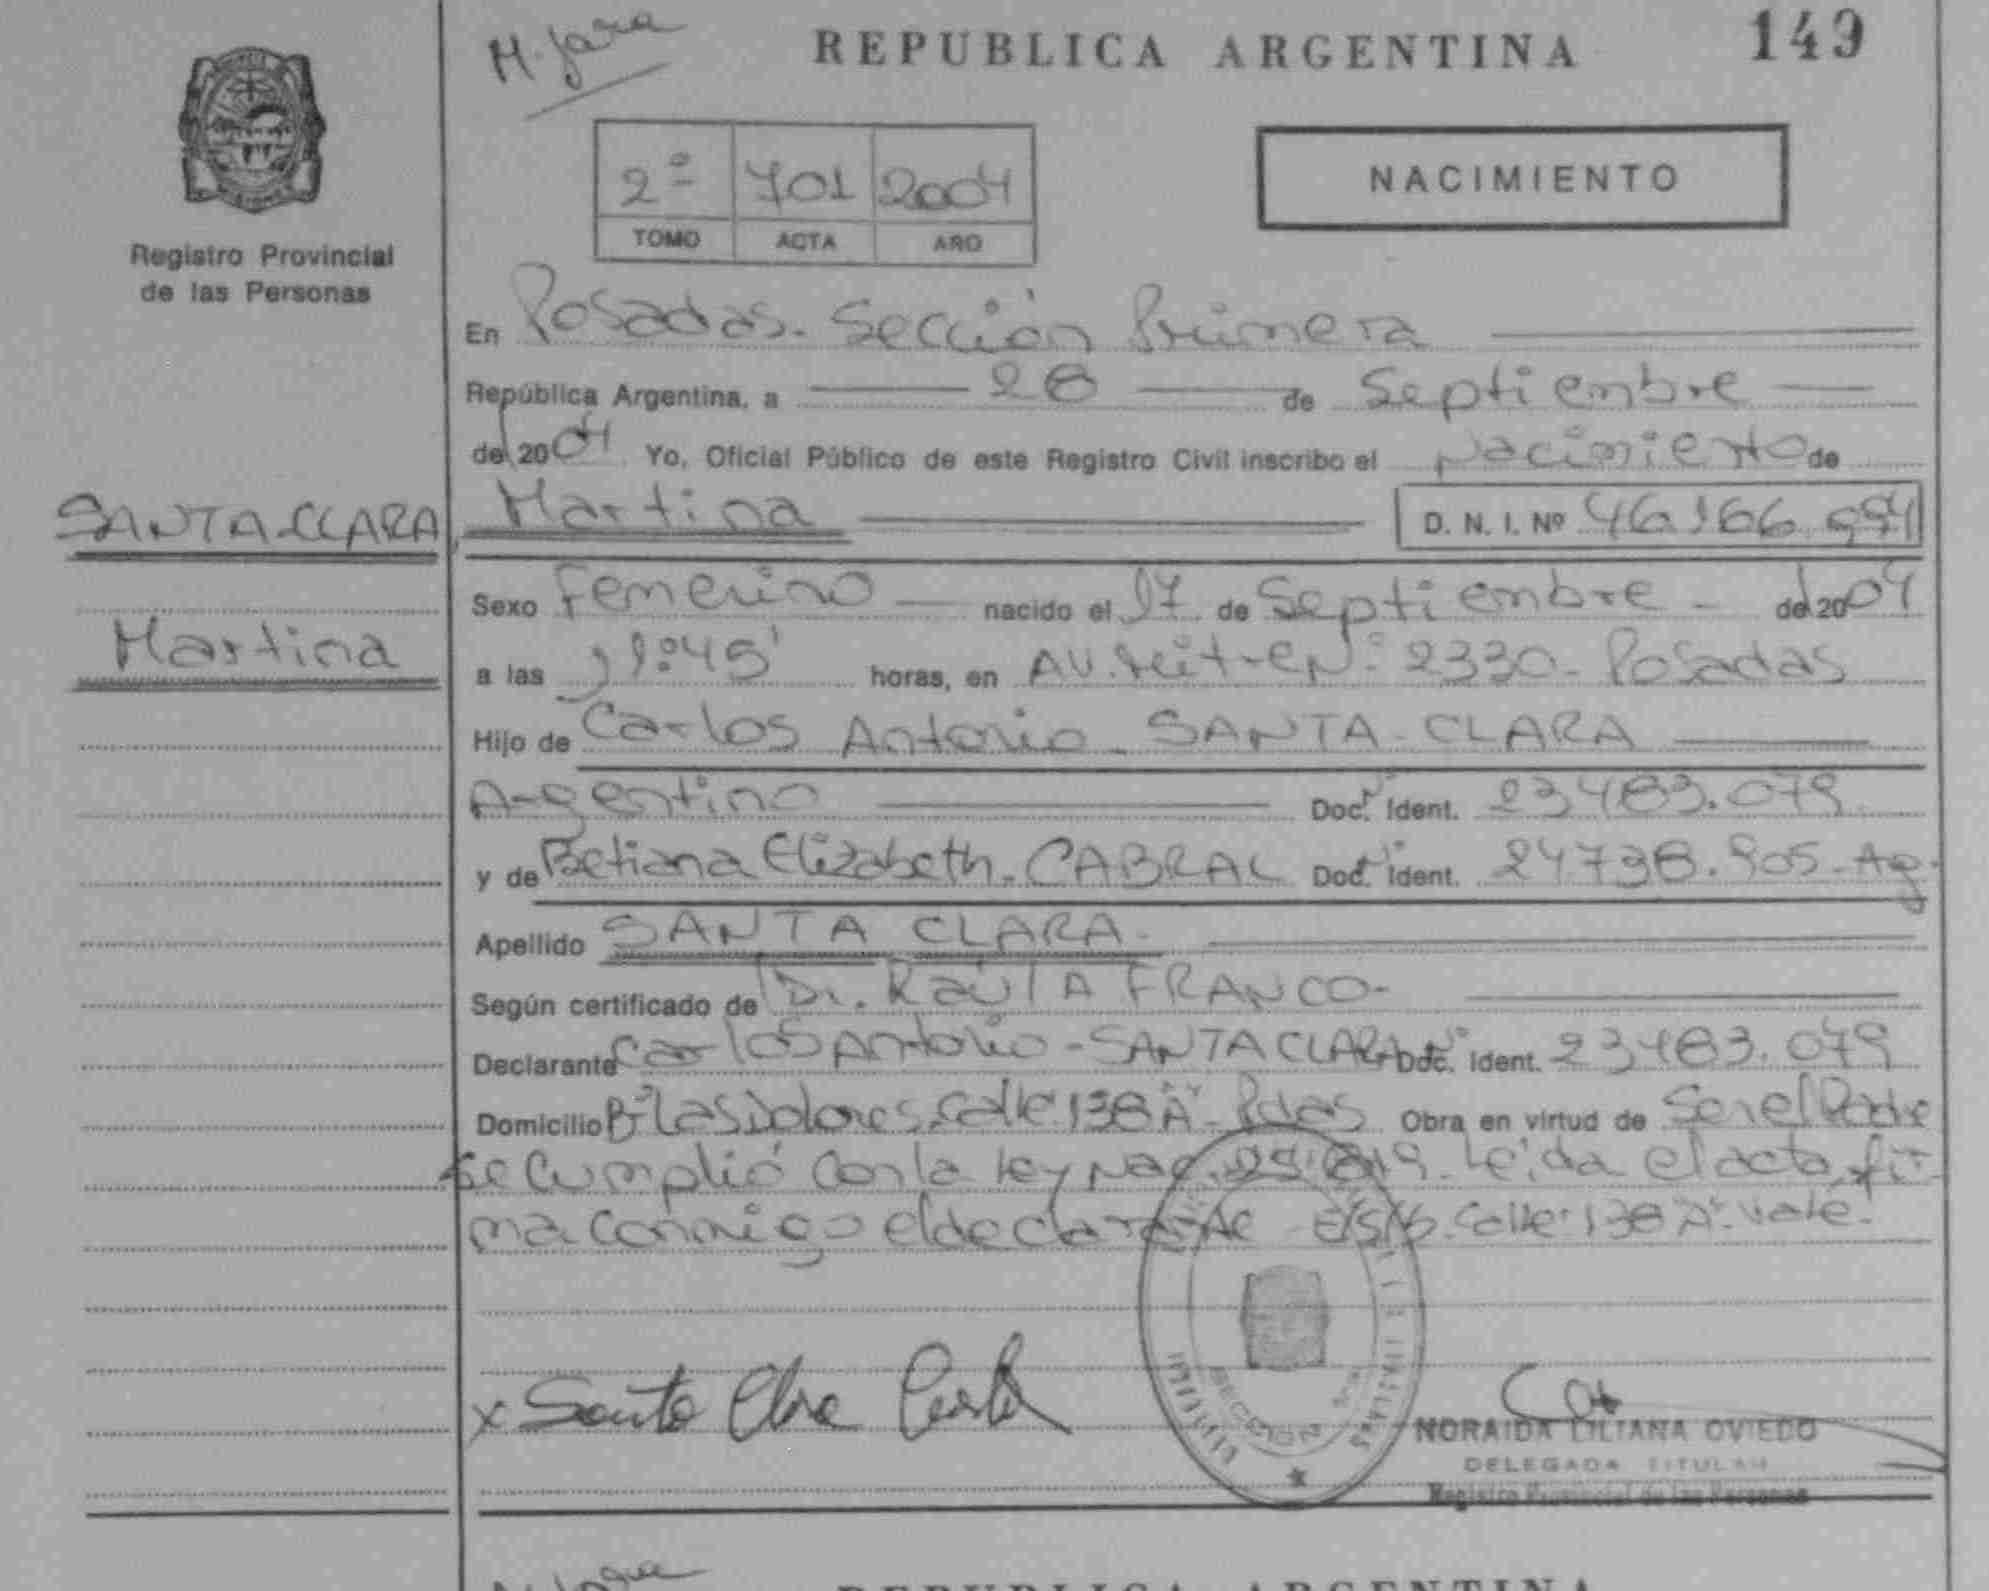 M. Jara
REPUBLICA ARGENTINA
149
2º 701 2004
TOMO ACTA AÑO
NACIMIENTO
Registro Provincial
de las Personas
En Posadas. Sección Primera
República Argentina, a 28 de Septiembre
del 2004 Yo, Oficial Público de este Registro Civil inscribo el Nacimiento de
SANTA-CLARA, Martina D. N. I. Nº 46.166.994
Sexo Femenino nacido el 17 de Septiembre - del 2004
Martina
a las 11:45' horas, en AV. Mitre Nº 2330 - Posadas
Hijo de Carlos Antonio - SANTA - CLARA
Argentino Doc. Ident. 23483.079
y de Betiana Elizabeth - CABRAL Doc. Ident. 24738.905 - Ag.
Apellido SANTA CLARA -
Según certificado de Dr. Raúl A FRANCO -
Declarante Carlos Antonio - SANTA CLARA Doc. Ident. 23483.079
Domicilio Bº Las Dolores, Calle: 138 "A" - Pdas Obra en virtud de Ser el Padre
se cumplió con la Ley Nac. 25.819. Leída el acta, fir-
ma conmigo el declarante - E/S/B. Calle: 138 "A". Vale.
x Santa Clara Carlos
SECCION
NORAIDA LILIANA OVIEDO
DELEGADA TITULAR
Registro Provincial de las Personas
REPUBLICA ARGENTINA